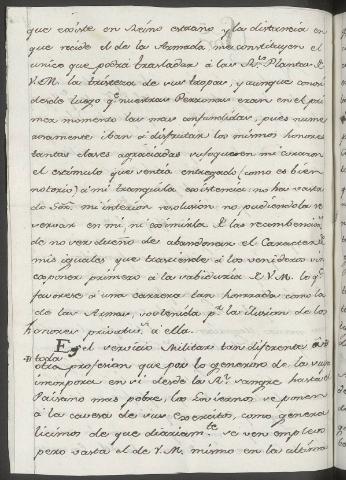 que existe en Reino estraño y la distancia en
que reside el de la Armada, me constituyen el
unico que podrá trasladar á las Rs. Plantas de
V.M. la tristeza de sus tropas, y aunque consi
desde luego qe. nuestras Personas eran en el pri
mer momento las mas
iban á disfrutar los mismos honores
tantas clases agraciadas sufoquen en mi corazon
el estimulo que sentia entregado (como es bien
notorio) á mi tranquila existencia: no ha basta
do Señor mi interior resolucion no pudiendola re
servar en mi, ni eximirla de las reconbenciones
de no ser dueño de abandonar el Caracter de
mis iguales que trasciende á los venideros sin
esponer primero á la sabiduria de V.M. lo qe.
favorece á una carrera tan honrada como la
de las Armas, sostenida pr. la ilusion de los
honores privativos á ella.
Es el servicio Militar tan diferente de
toda
otra profesion que por lo generoso de la suya
incorpora en si desde la Rl. sangre hasta el
Paisano mas pobre, los ponen
á la cavesa de sus exercitos, como genera
licimos de que diariamte. se ven empleos
pero hasta el de V.M. mismo en la ultima